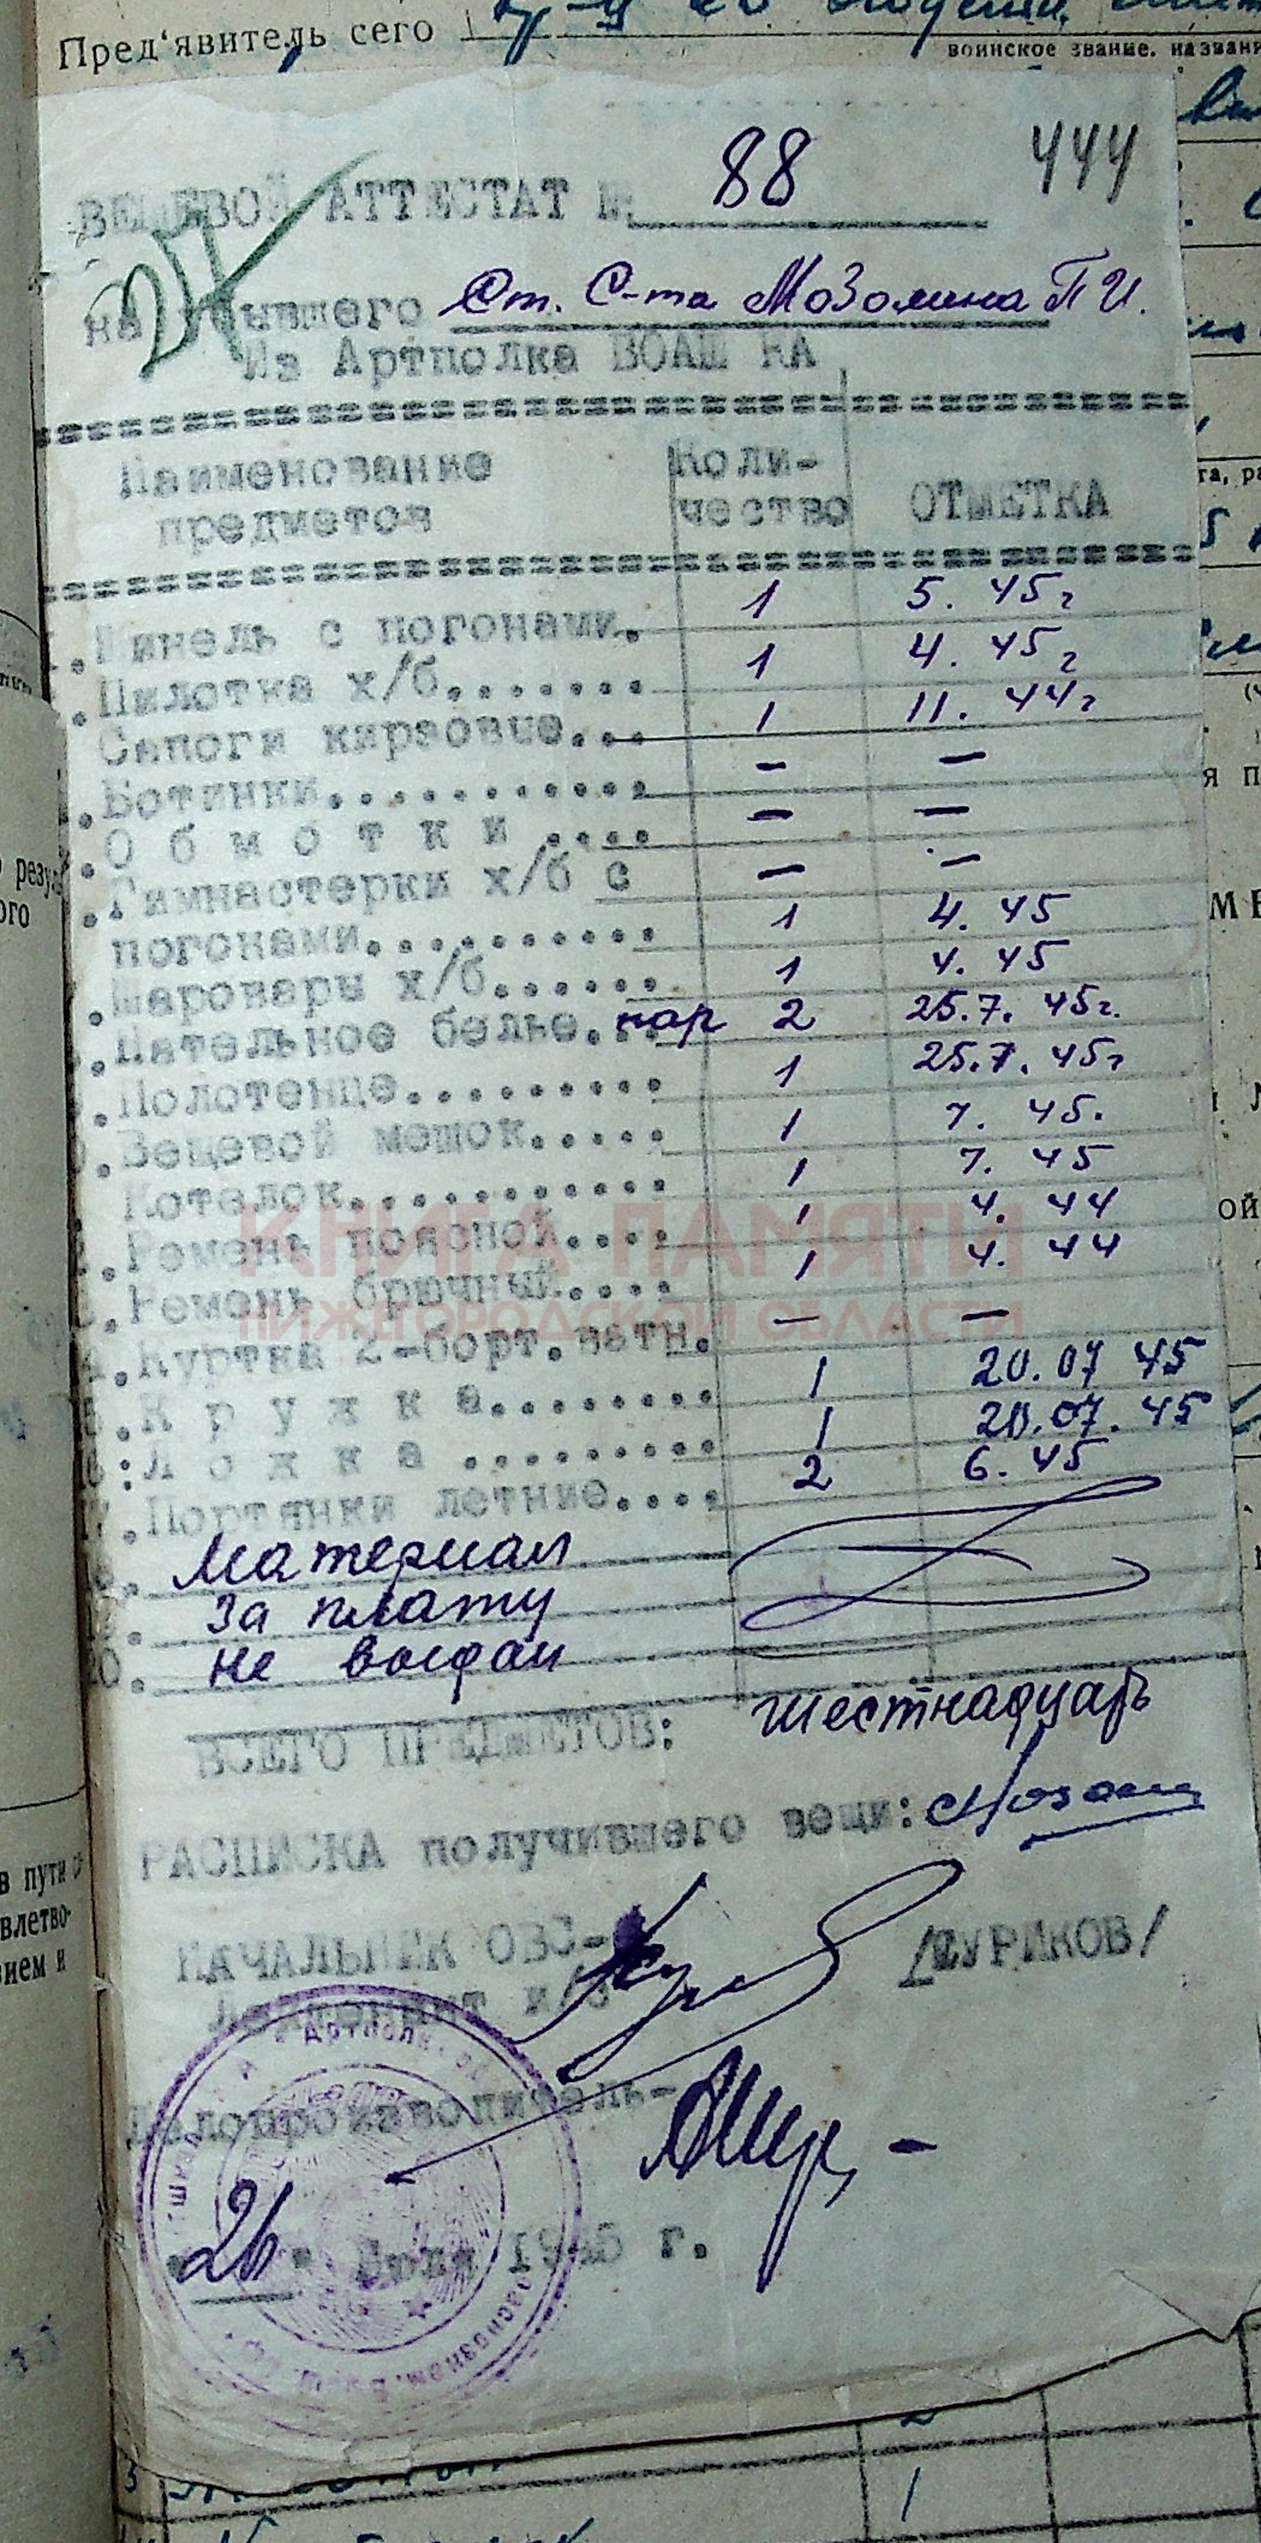 Пред‘явитель сего
воинское звание, назван
ВЕЩЕВОЙ АТТЕСТАТ № 88
444
на убывшего Ст. С-та Мозолина П И.
Из Артполка ВОАШ КА
Наименование предметов
Коли-
чество
ОТМЕТКА
Шинель с погонами. 1 5. 45 г
Пилотка х/б....... 1 4. 45 г
Сапоги кирзовые... 1 11. 44 г
Ботинки........... — —
О б м о т к и .... — —
Гимнастерки х/б с — —
погонами.......... 1 4. 45
Шаровары х/б...... 1 4. 45
Нательное белье... пар 2 25.7. 45 г.
Полотенце......... 1 25.7. 45 г
Вещевой мешок..... 1 7. 45.
Котелок........... 1 7. 45
Ремень поясной.... 1 4. 44
Ремень брючный.... 1 4. 44
Куртка 2-борт.ватн. — —
К р у ж к а....... 1 20.07 45
Л о ж к а ........ 1 20.07. 45
17.Портянки летние.... 2 6. 45
Материал
за плату
не выдан
ВСЕГО ПРЕДМЕТОВ: шестнадцать
РАСПИСКА получившего вещи:
НАЧАЛЬНИК ОВС-
Лейтенант и/с
/ШУРИКОВ/
Делопроизводитель-
"26" Июля 1945 г.
КНИГА ПАМЯТИ
НИЖЕГОРОДСКОЙ ОБЛАСТИ